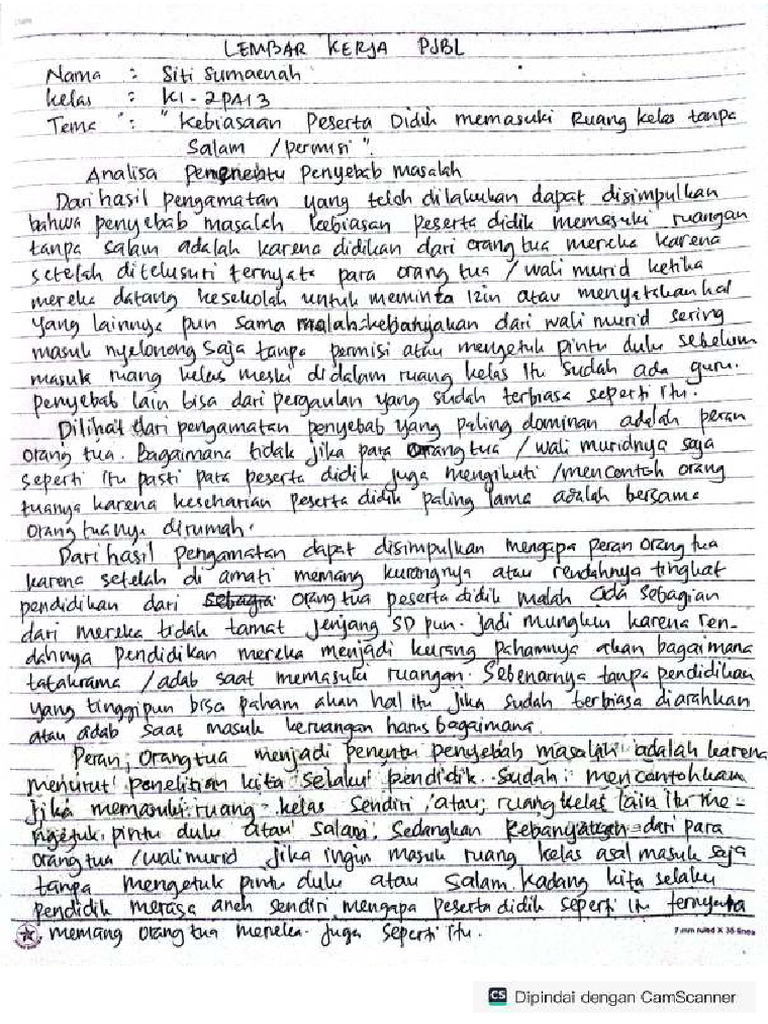 LEMBAR KERJA PJBL
Nama : Siti Sumaenah
Kelas : KI-2PAI3
Tema : "Kebiasaan Peserta Didik memasuki Ruang kelas tanpa
Salam /permisi".
Analisa Penentu Penyebab masalah
Dari hasil pengamatan yang telah dilakukan dapat disimpulkan
bahwa penyebab masalah kebiasan peserta didik memasuki ruangan
tanpa salam adalah karena didikan dari orang tua mereka karena
setelah ditelusuri ternyata para orang tua / wali murid ketika
mereka datang kesekolah untuk meminta izin atau menyatakan hal
yang lainnya pun sama malah kebanyakan dari wali murid sering
masuk nyelonong saja tanpa permisi atau mengetuk pintu dulu sebelum
masuk ruang kelas meski didalam ruang kelas itu sudah ada guru.
Penyebab lain bisa dari pergaulan yang sudah terbiasa seperti itu.
Dilihat dari pengamatan penyebab yang paling dominan adalah peran
orang tua. Bagaimana tidak jika para orang tua / wali muridnya saja
seperti itu pasti para peserta didik juga mengikuti / mencontoh orang
tuanya karena keseharian peserta didik paling lama adalah bersama
orang tuanya dirumah.
Dari hasil pengamatan dapat disimpulkan mengapa peran orang tua
karena setelah di amati memang kurangnya atau rendahnya tingkat
pendidikan dari orang tua peserta didik malah ada sebagian
dari mereka tidak tamat jenjang SD pun. Jadi mungkin karena ren-
dahnya pendidikan mereka menjadi kurang pahamnya akan bagaimana
tatakrama /adab saat memasuki ruangan. Sebenarnya tanpa pendidikan
yang tinggipun bisa paham akan hal itu jika sudah terbiasa diarahkan
atau adab saat masuk keruangan harus bagaimana.
Peran orang tua menjadi penentu penyebab masalah adalah karena
menurut penelitian kita selaku pendidik sudah mencontohkan
jika memasuki ruang kelas sendiri atau ruang kelas lain itu me-
ngetuk pintu dulu atau salam, Sedangkan kebanyakan dari para
orang tua /wali murid jika ingin masuk ruang kelas asal masuk saja
tanpa mengetuk pintu dulu atau salam. Kadang kita selaku
pendidik merasa aneh sendiri mengapa peserta didik seperti itu ternyata
memang orang tua mereka juga seperti itu.
7 mm ruled X 36 lines
CS Dipindai dengan CamScanner